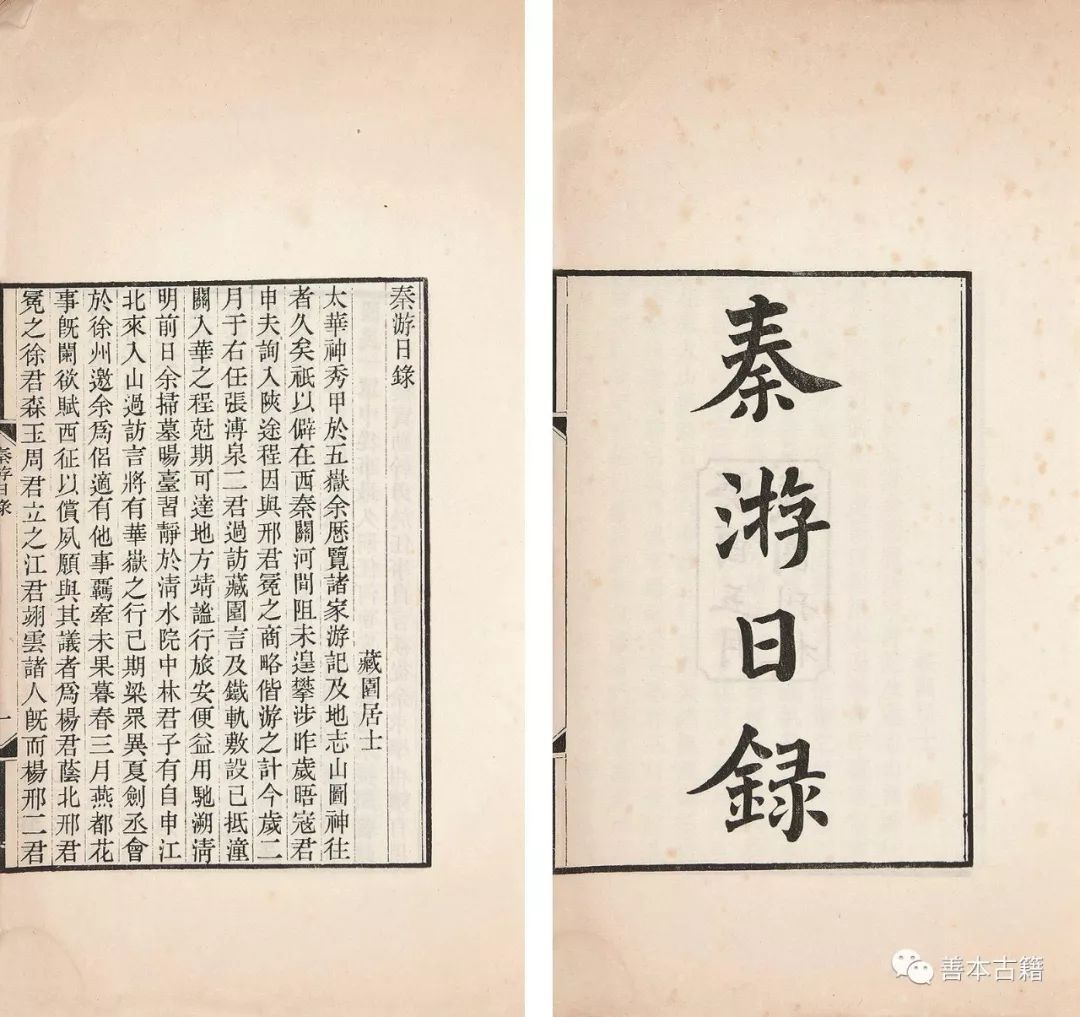 秦游日録
秦游日錄
藏園居士
太華神秀甲於五嶽余歷覽諸家游記及地志山圖神往
者久矣祇以僻在西秦關河間阻未遑攀涉昨歲晤寇君
申夫詢入陝途程因與邢君冕之商略偕游之計今歲二
月于右任張溥泉二君過訪藏園言及鐵軌敷設已抵潼
關入華之程尅期可達地方靖謐行旅安便益用馳溯淸
明前日余掃墓暘臺習靜於淸水院中林君子有自申江
北來入山過訪言將有華嶽之行已期梁眾異夏劍丞會
於徐州邀余爲侶適有他事覊牽未果暮春三月燕都花
事既闌欲賦西征以償夙願與其議者爲楊君蔭北邢君
冕之徐君森玉周君立之江君翊雲諸人既而楊邢二君
秦游日錄
一
善本古籍